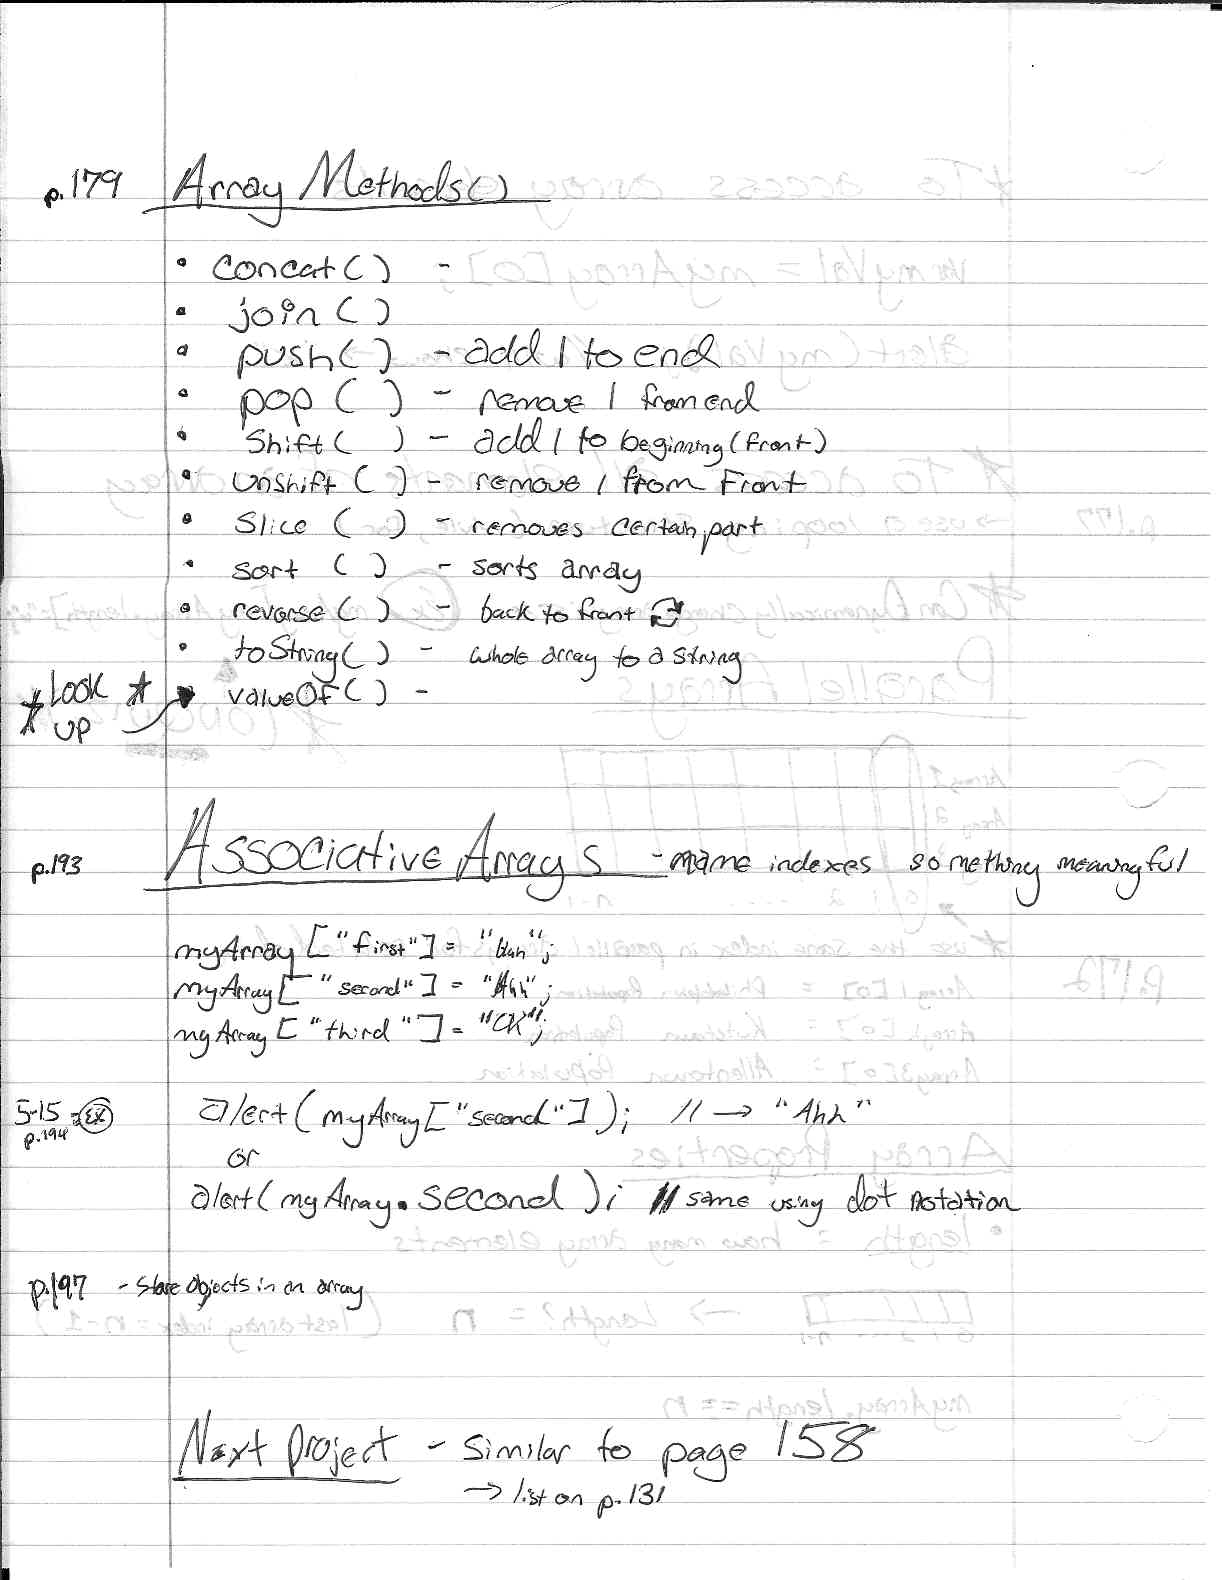 p.179 Array Methods()
• concat() -
• join()
• push() - add 1 to end
• pop() - remove 1 from end
• Shift() - add 1 to beginning (front)
• Unshift() - remove 1 from Front
• Slice() - removes certain part
• sort() - sorts array
• reverse() - back to front
• toString() - whole array to a string
* LOOK * UP → valueOf() -
p.193 Associative Arrays - name indexes something meaningful
myArray["first"] = "Uuh";
myArray["second"] = "Ahh";
myArray["third"] = "CK";
5-15 = EX p.194 alert(myArray["second"]); // → "Ahh"
or
alert(myArray.second); // same using dot notation
p.197 - Store objects in an array
Next project - similar to page 158
→ list on p.131